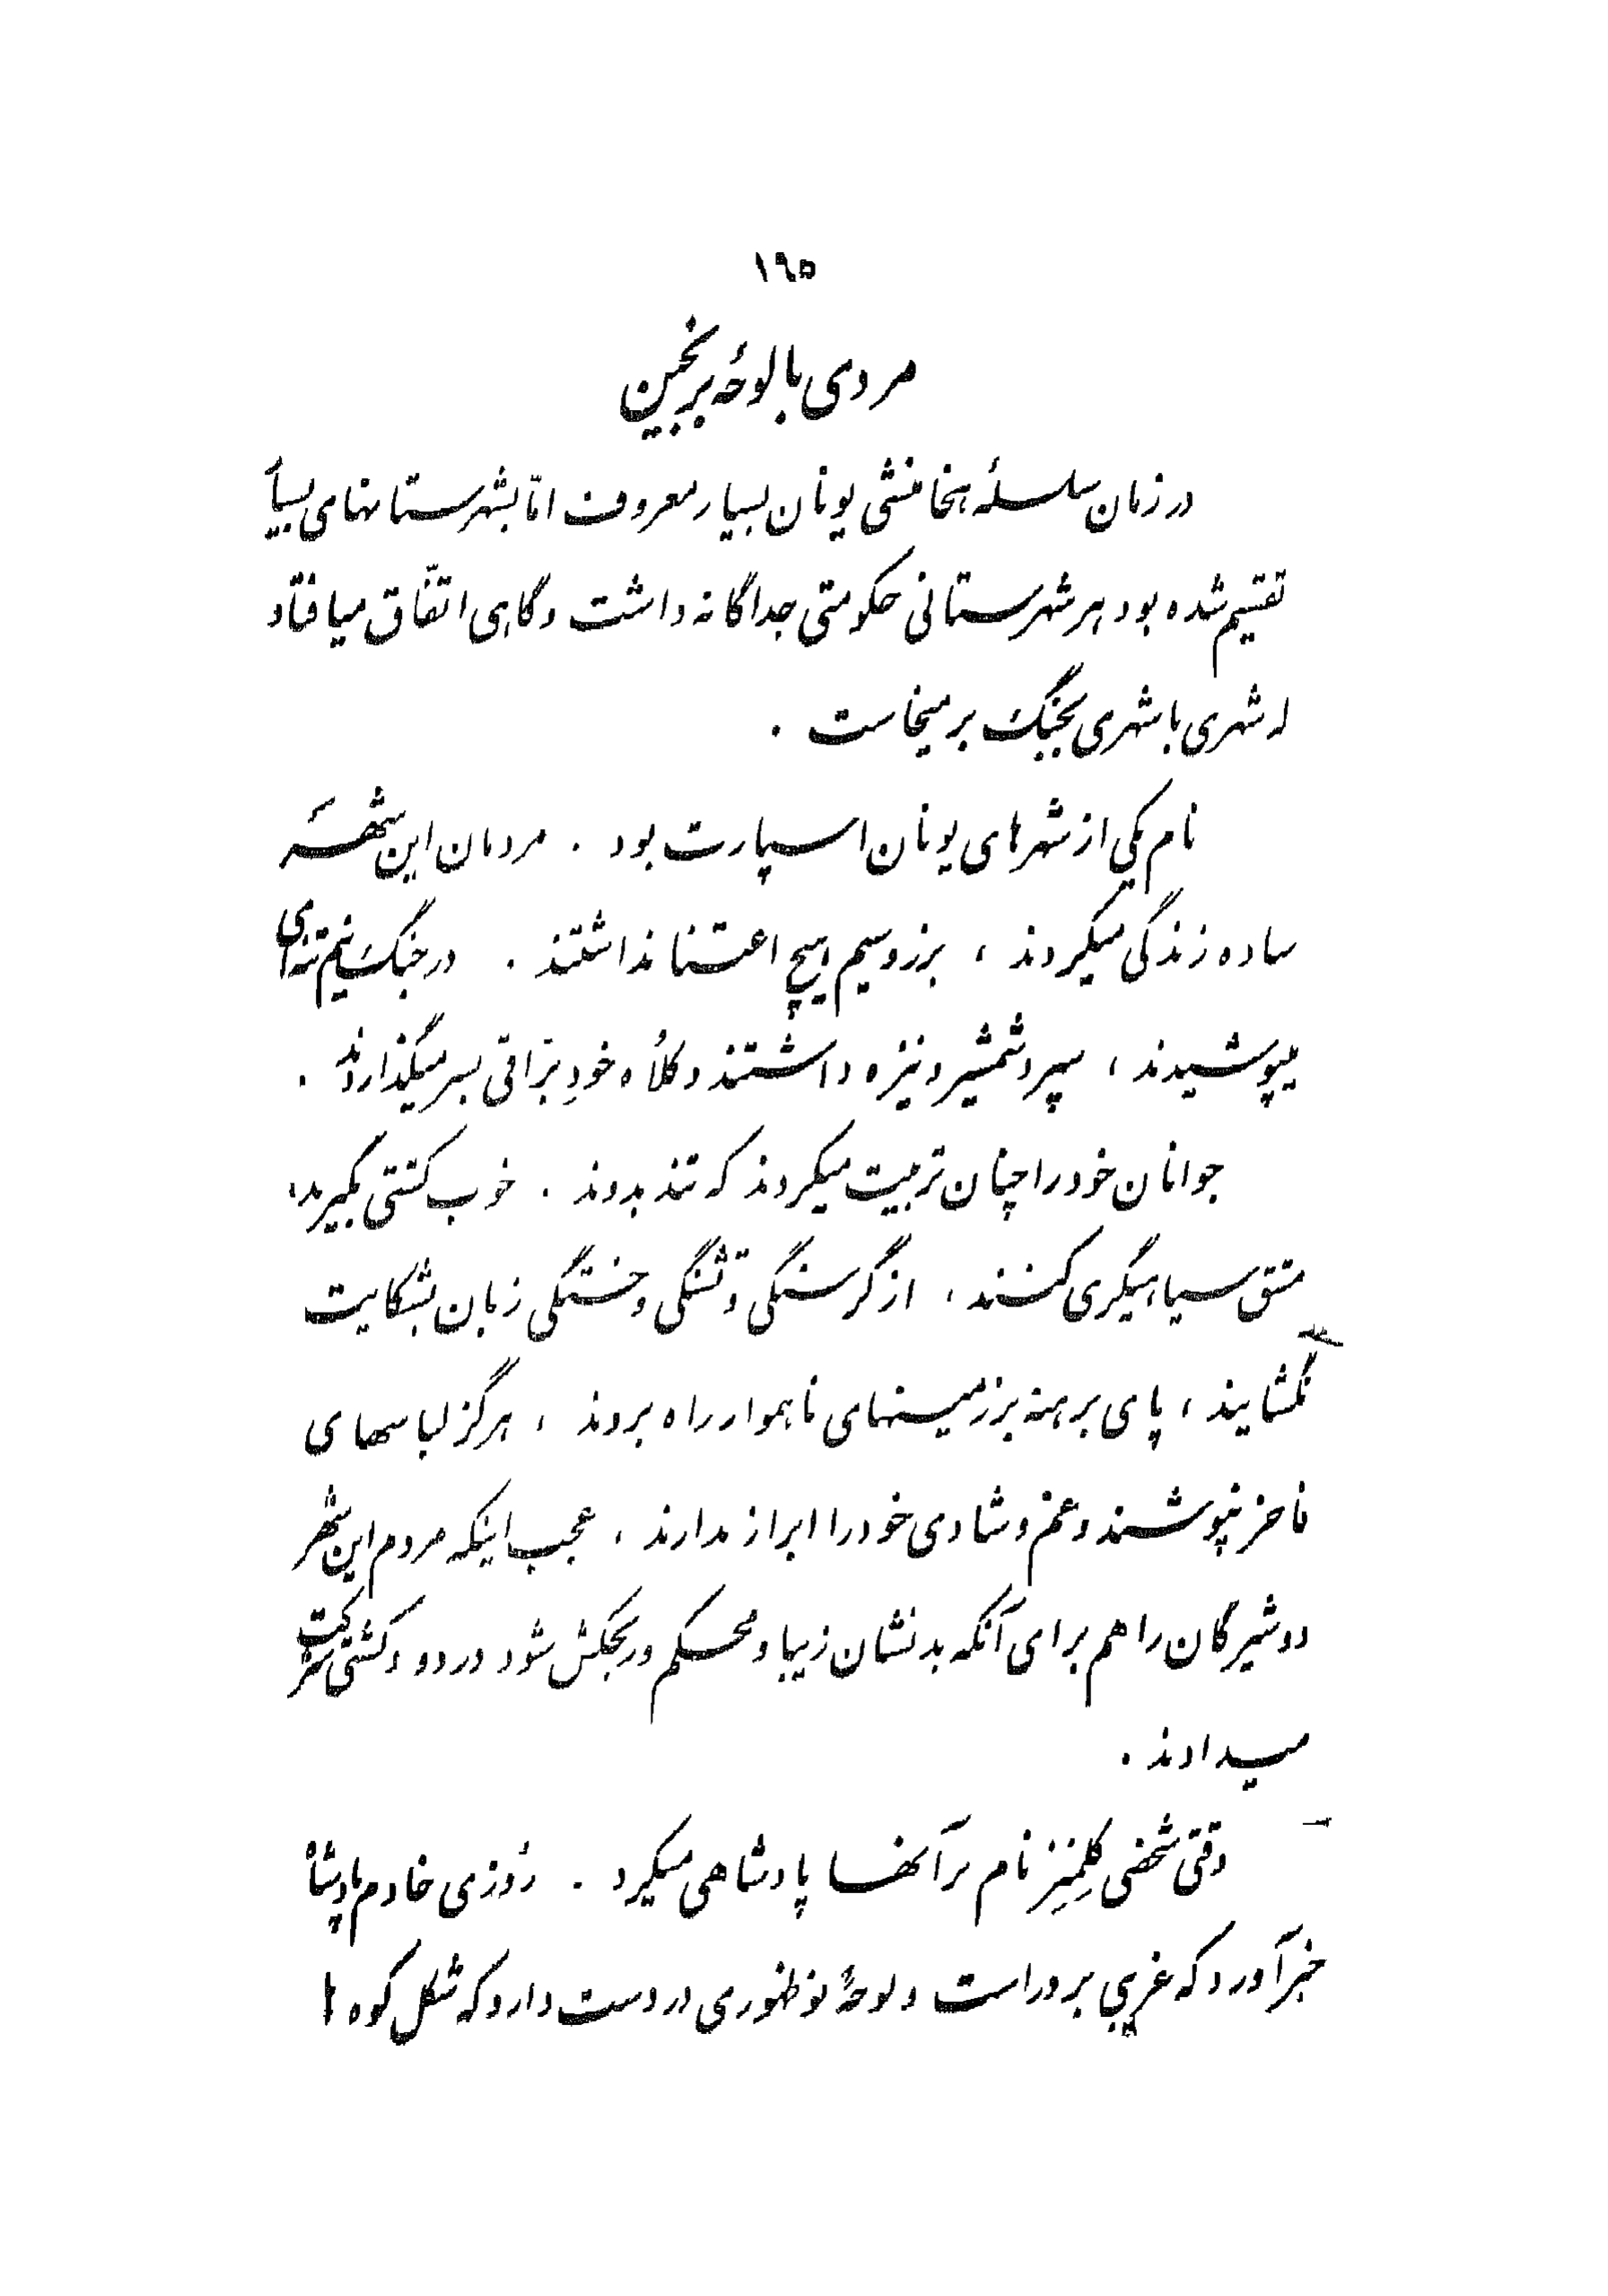 ١٦٥
مردی با لوحهٔ برنجین
در زمان سلسلهٔ هخامنشی یونان بسیار معروف امّا بشهرستانهای بسیار
تقسیم شده بود هر شهرستانی حکومتی جداگانه داشت و گاهی اتفّاق میافتاد
که شهری با شهری بجنگ بر میخاست .
نام یکی از شهرهای یونان اسپارت بود . مردمان این شهر
ساده زندگی میکردند ، بزر و سیم هیچ اعتنا نداشتند . در جنگ نیم تنه‌ای
میپوشیدند ، سپر و شمشیر و نیزه داشتند و کلاه خودِ برّاقی بسر میگذاردند .
جوانان خود را چنان تربیت میکردند که تند بدوند . خوب کشتی بگیرند ،
مشق سپاهیگری کنند ، از گرسنگی و تشنگی و خستگی زبان بشکایت
نگشایند ، پای برهنه بر زمینهای ناهموار راه بروند ، هرگز لباسهای
فاخر نپوشند و غم و شادی خود را ابراز ندارند ، عجب اینکه مردم این شهر
دوشیزگان را هم برای آنکه بدنشان زیبا و محکم و ریختکش شود در دو و کشتی شرکت
میدادند .
وقتی شخصی کلِمِنِز نام بر آنها پادشاهی میکرد . روزی خادم پادشاه
خبر آورد که غریبی بر در است و لوحهٔ نوظهوری در دست دارد که شکل کوه ها